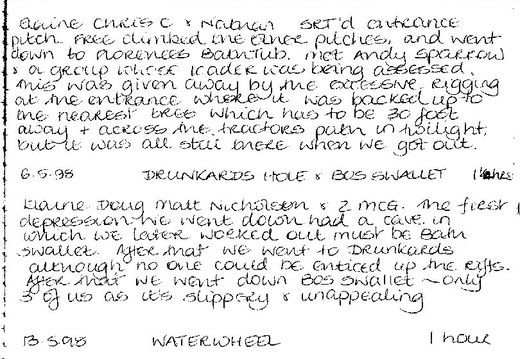 Elaine Chris C & Nathan SRT'd entrance
pitch. Free climbed the other pitches, and went
down to Florences Bathtub. Met Andy Sparrow
& a group whose leader was being assessed.
This was given away by the excessive rigging
at the entrance where it was backed up to
the nearest tree which has to be 30 foot
away & across the tractors path in twilight,
but it was all still there when we got out.
6.5.98 DRUNKARDS HOLE & BOS SWALLET
Elaine Doug Matt Nicholson & 2 MCG. The first
depression we went down had a cave in
which we later worked out must be Bath
Swallet. After that we went to Drunkards
although no one could be enticed up the rifts.
After that we went down BOS Swallet - only
3 of us as it's slippery & unappealing
13.5.98 WATERWHEEL 1 hour